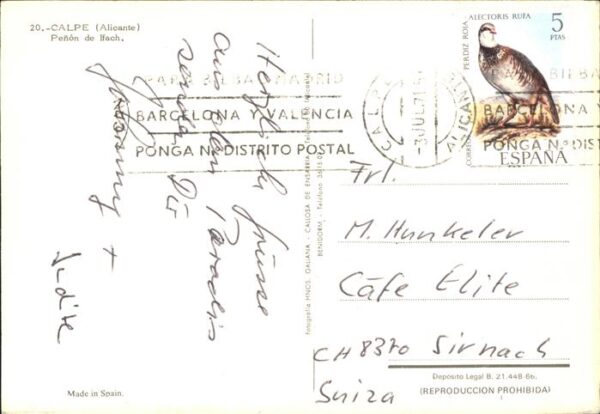 20.-CALPE (Alicante)
Peñón de Ifach.
Herzlich Grüsse
aus dem Paradis
senden Dir
Johnny +
Judite
Fotografía HNOS. GALIANA - CALLOSA DE ENSARRIA
BENIDORM.- Teléfono
PARA BILBAO MADRID
BARCELONA Y VALENCIA
PONGA Nº DISTRITO POSTAL
CALPE
3 JUL 71
ALICANTE
PARA BILBA
BARCELONA Y
PONGA Nº DIS
PERDIZ ROJA ALECTORIS RUFA
5
PTAS
CORREOS
ESPAÑA
Frl.
M. Hunkeler
Cáfe Elite
CH 8370 Sirnach
Suiza
Made in Spain.
Depósito Legal B. 21.448-6
(REPRODUCCION PROHIBIDA)